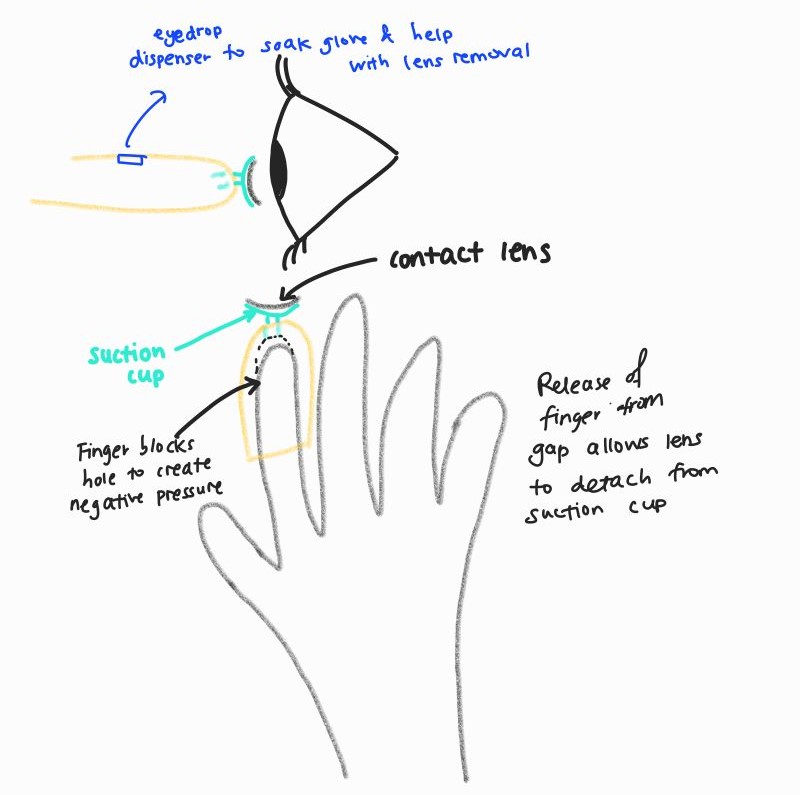 eyedrop
dispenser to soak glove & help
with lens removal
contact lens
suction
cup
Finger blocks
hole to create
negative pressure
Release of
finger from
gap allows lens
to detach from
suction cup